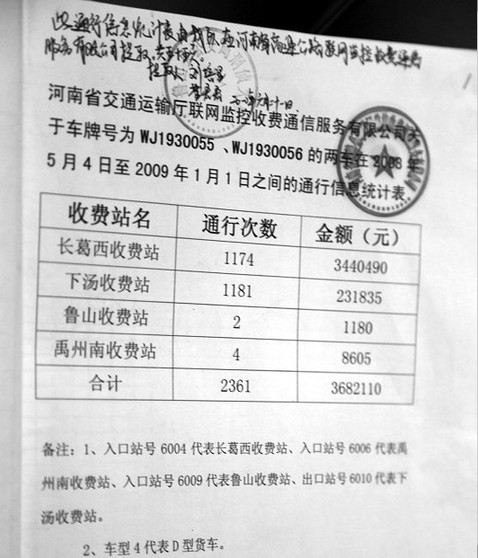 此通行信息统计表由我队在河南省高速公路联网监控收费通信
服务有限公司提取,共
提取人
河南省交通运输厅联网监控收费通信服务有限公司关
于车牌号为 WJ1930055、WJ1930056 的两车在 2008 年
5 月 4 日至 2009 年 1 月 1 日之间的通行信息统计表
收费站名 通行次数 金额（元）
长葛西收费站 1174 3440490
下汤收费站 1181 231835
鲁山收费站 2 1180
禹州南收费站 4 8605
合计 2361 3682110
备注：1、入口站号 6004 代表长葛西收费站、入口站号 6006 代表禹
州南收费站、入口站号 6009 代表鲁山收费站、出口站号 6010 代表下
汤收费站。
2、车型 4 代表 D 型货车。